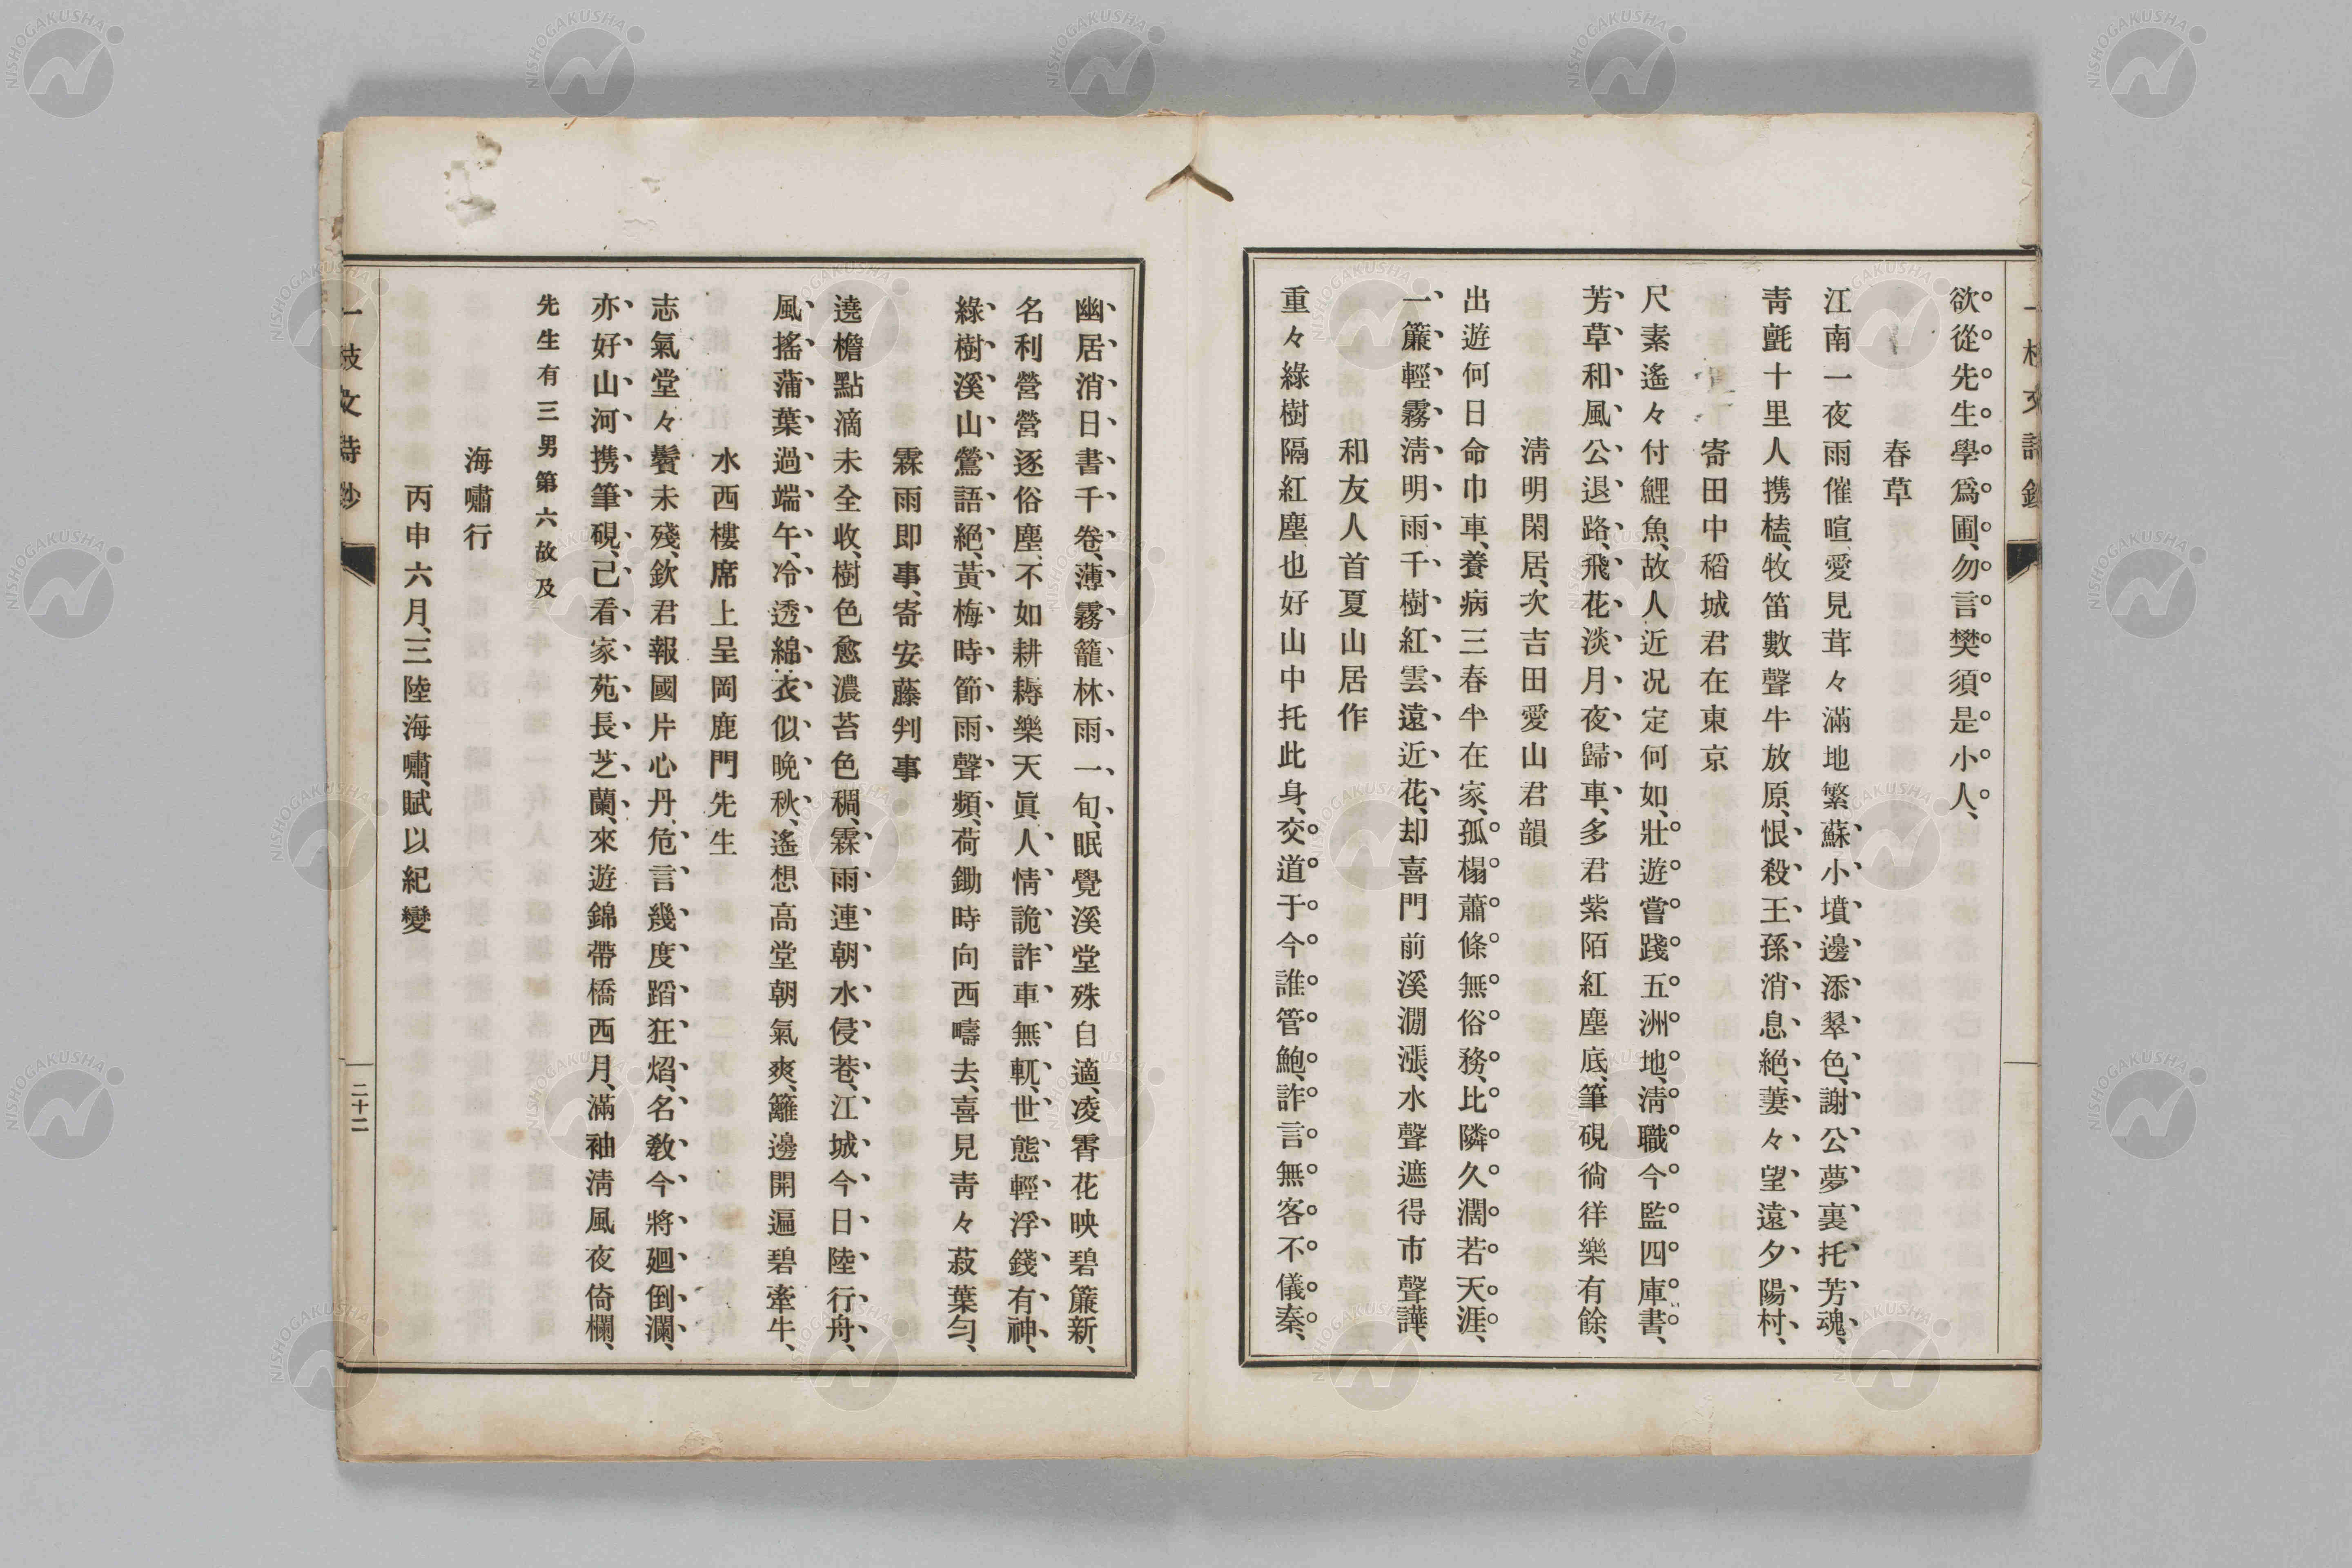 欲從先生學爲圃、勿言樊須是小人、
春草
江南一夜雨催暄、愛見茸々滿地繁、蘇小墳邊添翠色、謝公夢裏托芳魂、
靑氈十里人携榼、牧笛數聲牛放原、恨殺王孫消息絕、萋々望遠夕陽村、
寄田中稻城君在東京
尺素遙々付鯉魚、故人近況定何如、壯遊嘗踐五洲地、淸職今監四庫書、
芳草和風公退路、飛花淡月夜歸車、多君紫陌紅塵底、筆硯徜徉樂有餘、
淸明閑居、次吉田愛山君韻
出遊何日命巾車、養病三春半在家、孤榻蕭條無俗務、比隣久濶若天涯、
一簾輕霧淸明雨、千樹紅雲遠近花、却喜門前溪澗漲、水聲遮得市聲譁、
和友人首夏山居作
重々綠樹隔紅塵、也好山中托此身、交道于今誰管鮑、詐言無客不儀秦、
幽居消日書千卷、薄霧籠林雨一旬、眠覺溪堂殊自適、凌霄花映碧簾新、
名利營營逐俗塵、不如耕耨樂天眞、人情詭詐車無軏、世態輕浮錢有神、
綠樹溪山鶯語絕、黃梅時節雨聲頻、荷鋤時向西疇去、喜見靑々菽葉勻、
霖雨卽事、寄安藤判事
遶檐點滴未全收、樹色愈濃苔色稠、霖雨連朝水侵巷、江城今日陸行舟、
風搖蒲葉過端午、冷透綿衣似晩秋、遙想高堂朝氣爽、籬邊開遍碧牽牛、
水西樓席上呈岡鹿門先生
志氣堂々鬢未殘、欽君報國片心丹、危言幾度蹈狂焰、名敎今將廻倒瀾、
亦好山河携筆硯、己看家苑長芝蘭、來遊錦帶橋西月、滿袖淸風夜倚欄、
先生有三男第六故及
海嘯行
丙申六月、三陸海嘯、賦以紀變
二十二